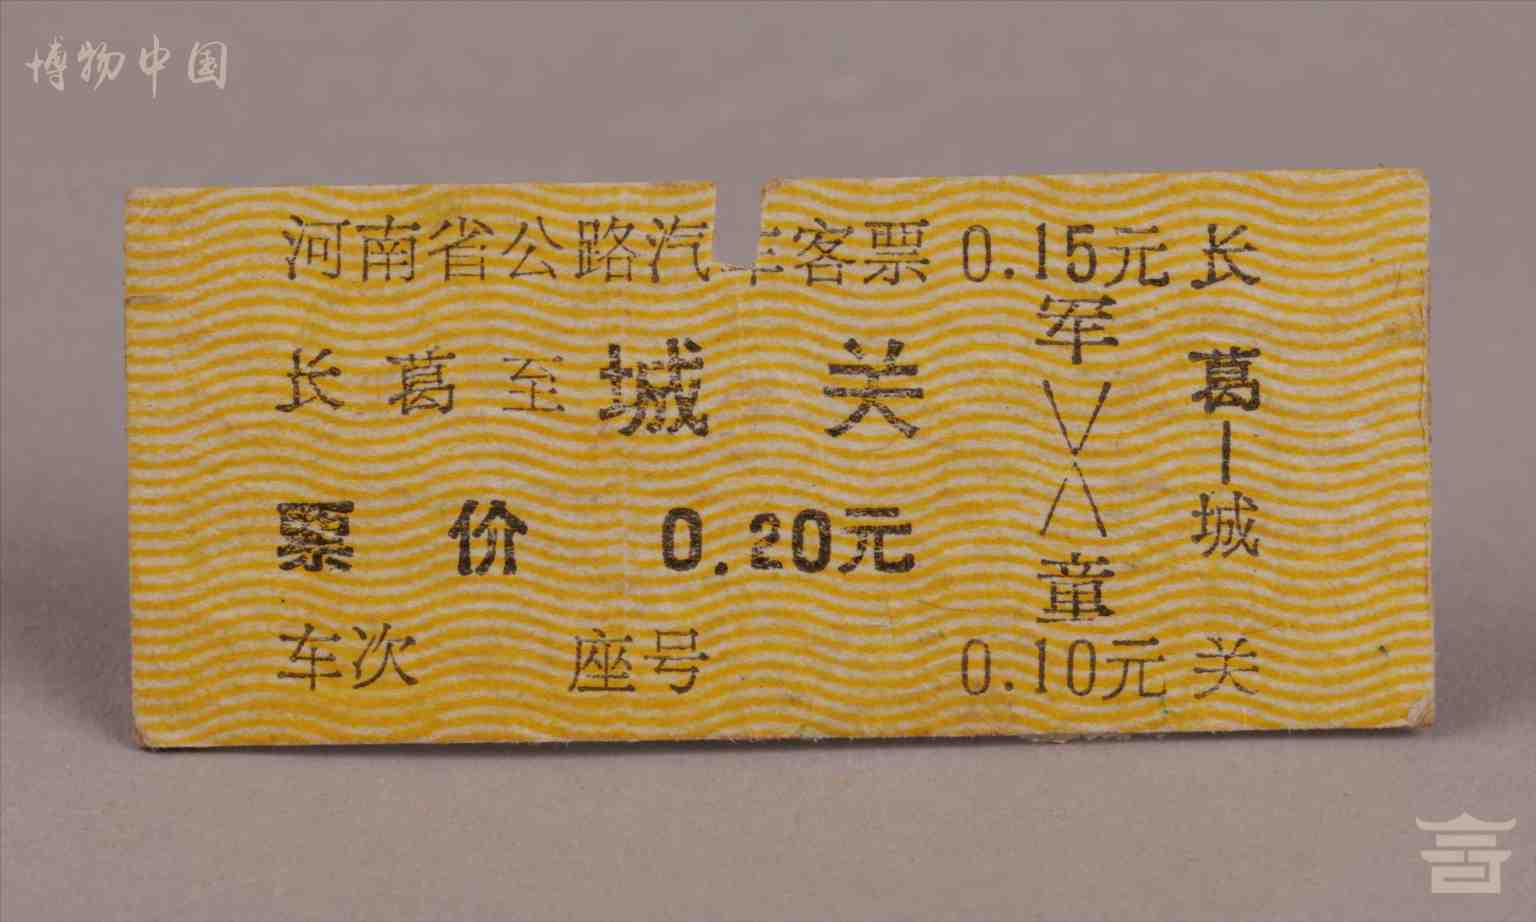 博物中国
河南省公路汽车客票
长葛至城关
票价 0.20元
车次 座号
0.15元
军
童
0.10元
长葛—城关